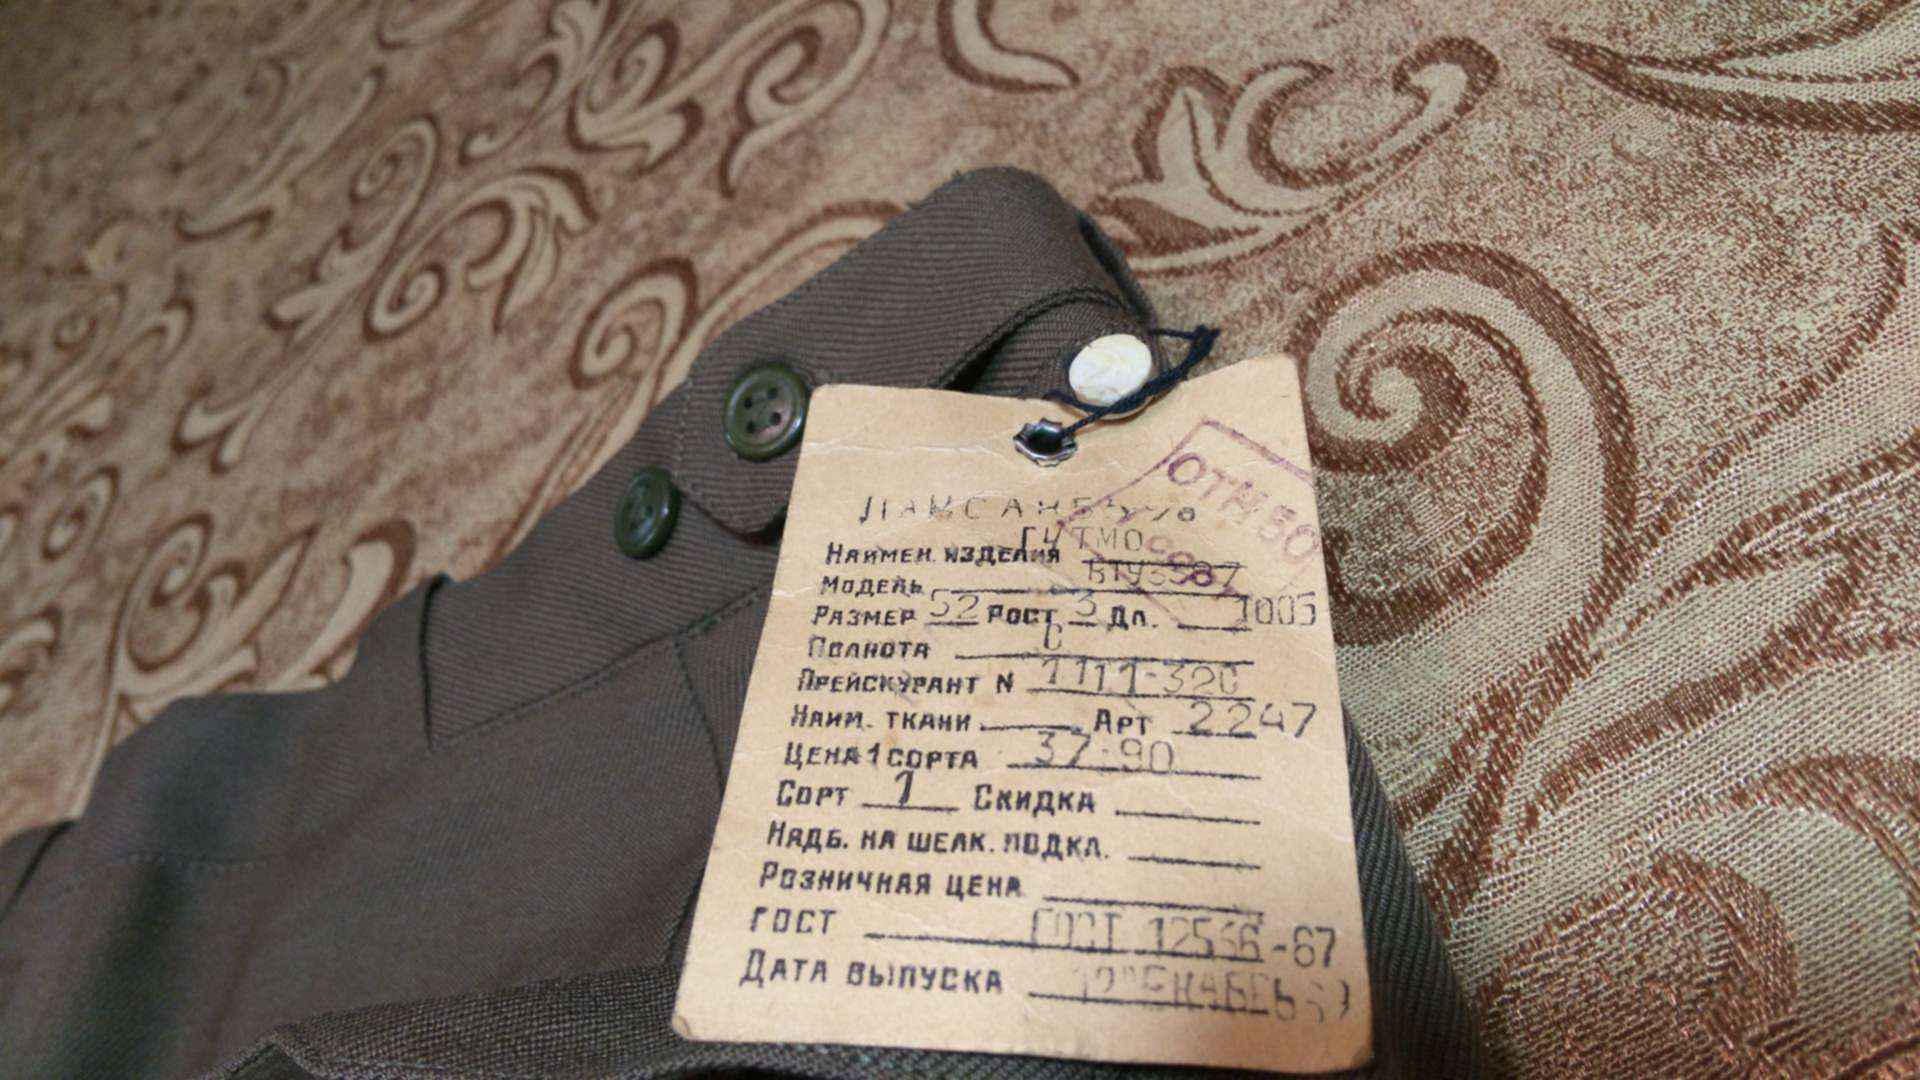 ОТК 50
Наимен. изделия
Модель ВТУ3587
Размер 52 Рост 3 Дл. 1005
Полнота
Прейскурант N 1111-320
Наим. ткани Арт 2247
Цена 1 сорта 37-90
Сорт 1 Скидка
Надб. на шелк. подкл.
Розничная цена
ГОСТ ГОСТ 12566-67
Дата выпуска